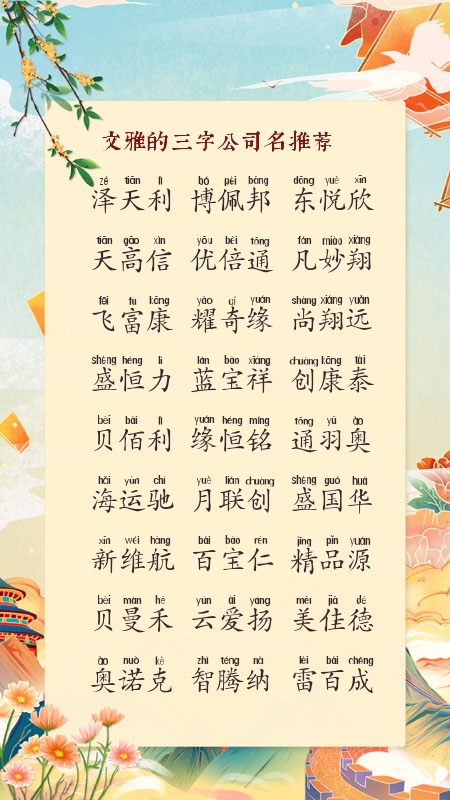 文雅的三字公司名推荐
zé tiān lì bó pèi bāng dōng yuè xīn
泽天利 博佩邦 东悦欣
tiān gāo xìn yōu bèi tōng fán miào xiáng
天高信 优倍通 凡妙翔
fēi fù kāng yào qí yuán shàng xiáng yuǎn
飞富康 耀奇缘 尚翔远
shèng héng lì lán bǎo xiáng chuàng kāng tài
盛恒力 蓝宝祥 创康泰
bèi bǎi lì yuán héng míng tōng yǔ ào
贝佰利 缘恒铭 通羽奥
hǎi yùn chí yuè lián chuàng shèng guó huá
海运驰 月联创 盛国华
xīn wéi háng bǎi bǎo rén jīng pǐn yuán
新维航 百宝仁 精品源
bèi màn hé yún ài yáng měi jiā dé
贝曼禾 云爱扬 美佳德
ào nuò kè zhì téng nà léi bǎi chéng
奥诺克 智腾纳 雷百成